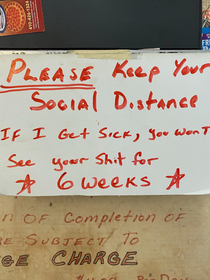 PLEASE KEEP YOUR
SOCIAL DISTANCE
IF I GET SICK, YOU WON'T
SEE YOUR SHIT FOR
☆ 6 WEEKS ☆
OF COMPLETION OF
SUBJECT TO
CHARGE